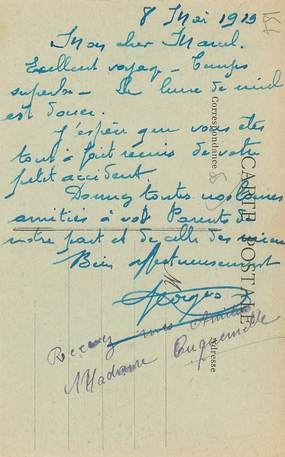 8 Mai 1929
Mon cher Marcel.
Excellent voyage - Temps
superbe - La lune de miel
est douce.
J'espère que vous êtes
tout à fait remis de votre
petit accident.
Donnez toutes nos bonnes
amitiés à vos Parents de
notre part et de celle des miens
Bien affectueusement
Georges
Recevez mes Amitiés
Madame
CARTE POSTALE
Correspondance
Adresse
M